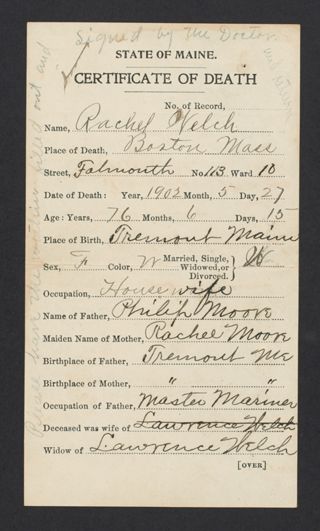 Signed by the Doctor.
and return
Please have the within filled out and
STATE OF MAINE.
CERTIFICATE OF DEATH
No. of Record,
Name, Rachel Welch
Place of Death, Boston Mass
Street, Falmouth No 113 Ward 10
Date of Death: Year, 1902 Month, 5 Day, 27
Age: Years, 76 Months, 6 Days, 15
Place of Birth, Tremont Maine
Sex, F Color, W Married, Single, Widowed, or Divorced. } W
Occupation, Housewife
Name of Father, Philip Moore
Maiden Name of Mother, Rachel Moore
Birthplace of Father, Tremont Me
Birthplace of Mother, " "
Occupation of Father, Master Mariner
Deceased was wife of Lawrence Welch
Widow of Lawrence Welch
[OVER]